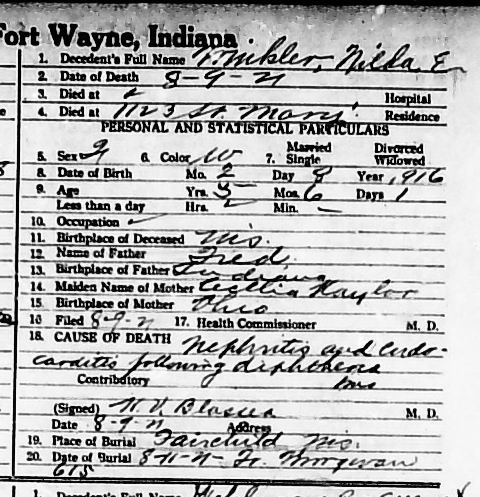 Fort Wayne, Indiana
1. Decedent's Full Name Winkler, Nilda E
2. Date of Death 8-9-21
3. Died at Hospital
4. Died at 1123 St. Mary's Residence
PERSONAL AND STATISTICAL PARTICULARS
5. Sex 6. Color W 7. Married Single Divorced Widowed
8. Date of Birth Mo. 2 Day 8 Year 1916
9. Age Yrs. 5 Mos. 6 Days 1
Less than a day Hrs. Min. –
10. Occupation
11. Birthplace of Deceased Wis.
12. Name of Father Fred
13. Birthplace of Father Indiana
14. Maiden Name of Mother Cecelia Naylor
15. Birthplace of Mother Ohio
16 Filed 8-9-21 17. Health Commissioner M. D.
18. CAUSE OF DEATH Nephritis and Endo-
carditis following diphtheria
Contributory
(Signed) M. D.
Date 8-9-21 Address
19. Place of Burial Fairchild Wis.
20. Date of Burial 8-11-21
615
1. Decedent's Full Name